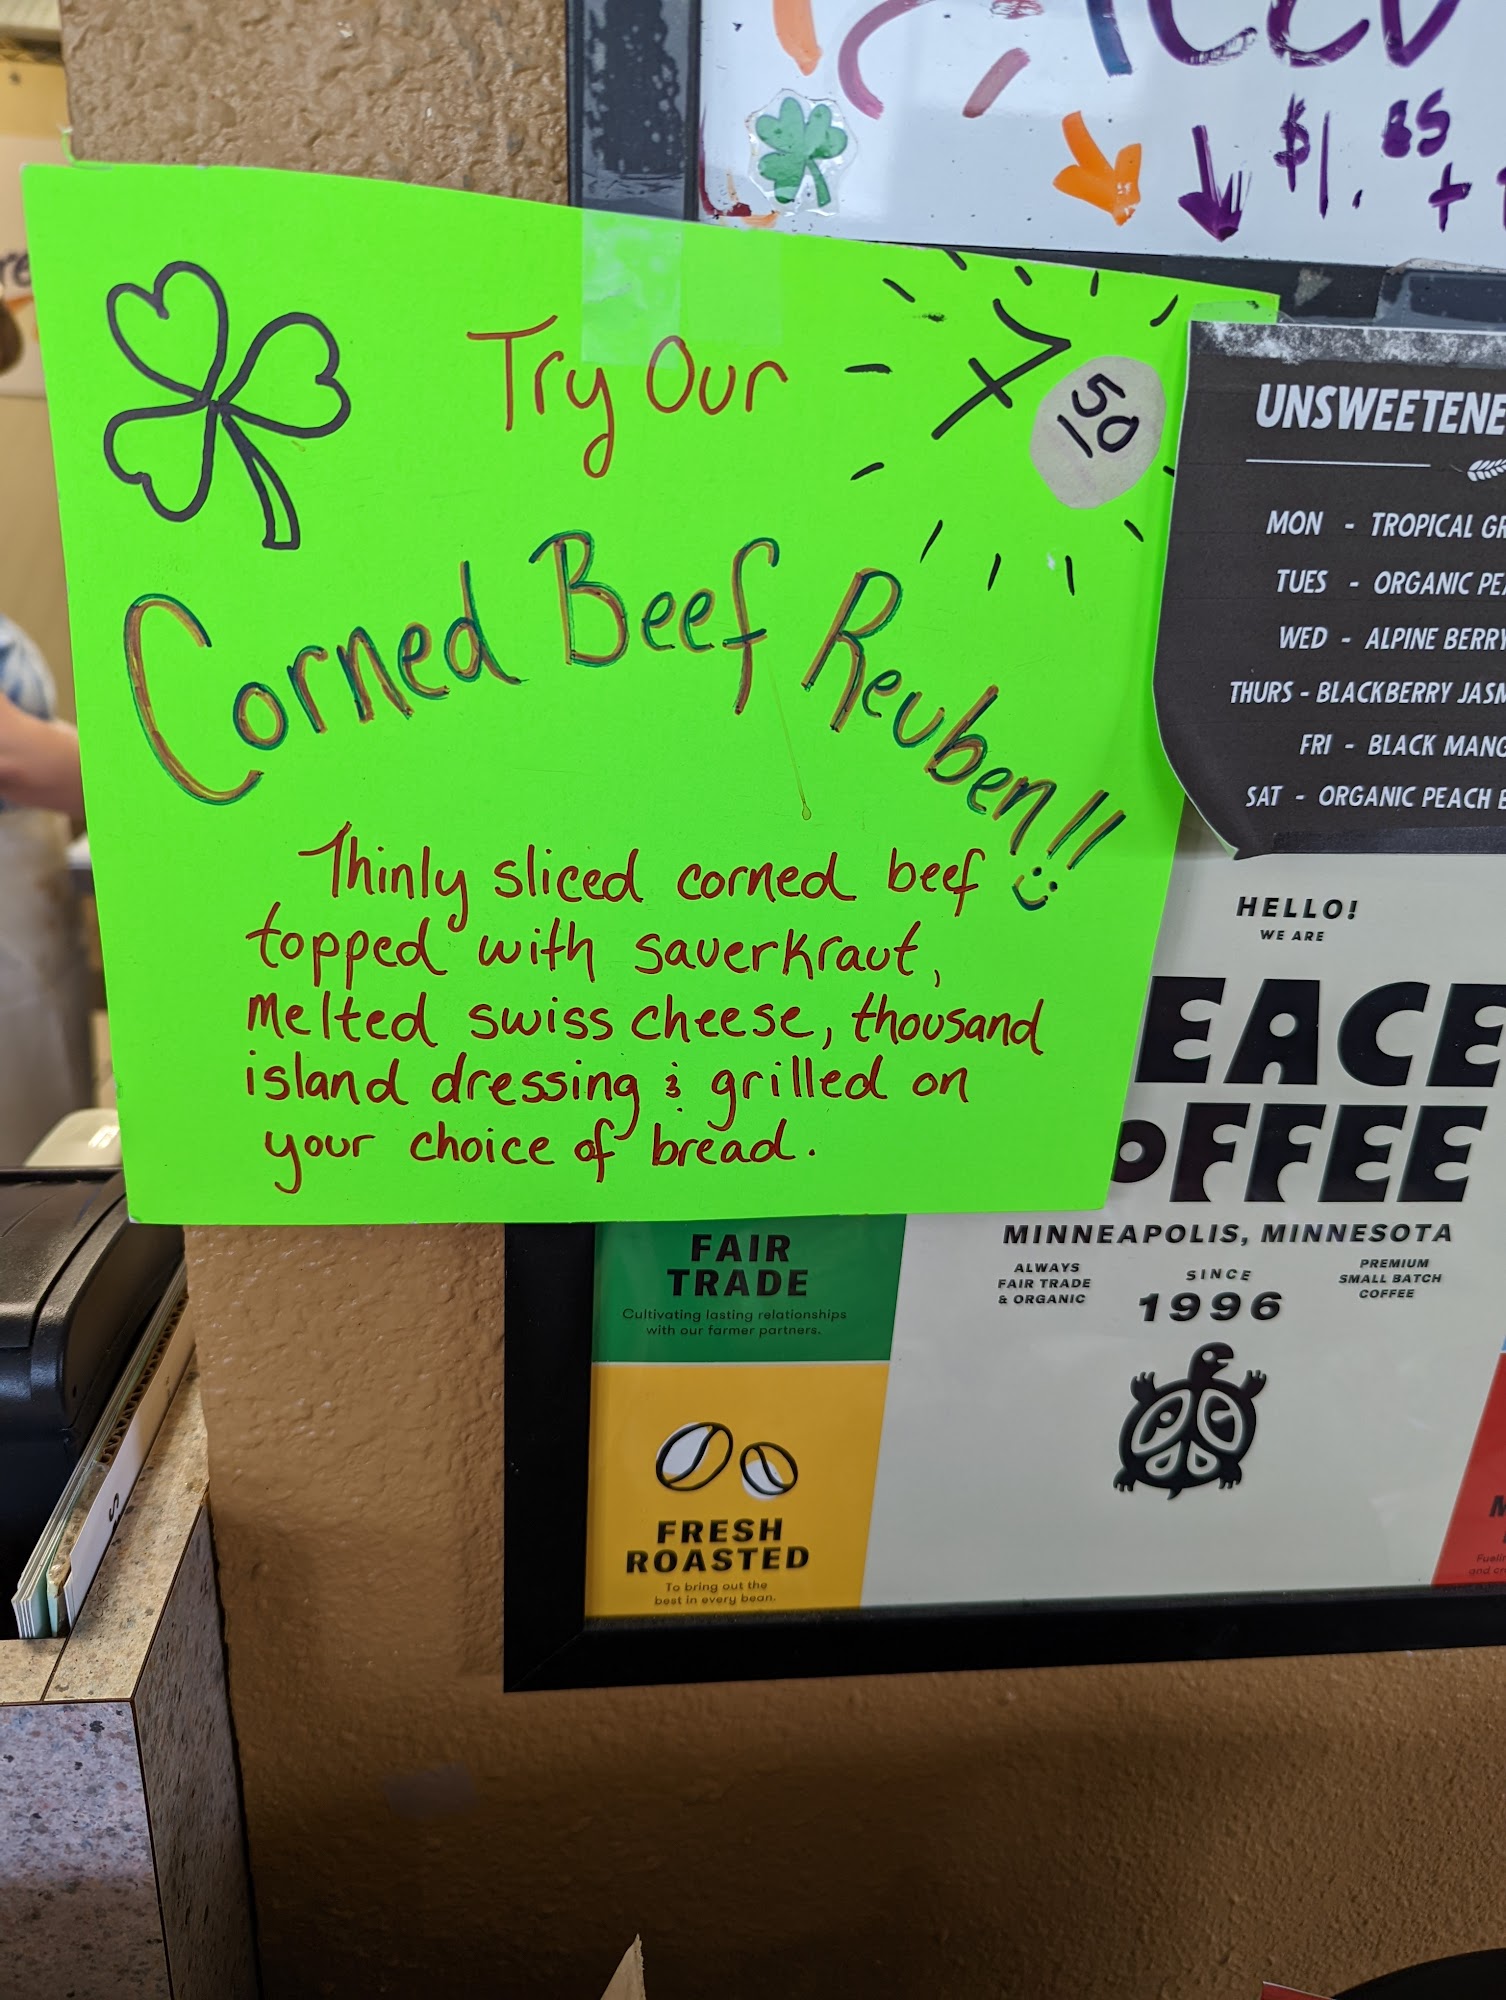 $1.85 +
Try Our
7 50
Corned Beef Reuben!!
Thinly sliced corned beef
topped with sauerkraut,
melted swiss cheese, thousand
island dressing & grilled on
your choice of bread.
MON - TROPICAL
TUES - ORGANIC
WED - ALPINE BERRY
THURS - BLACKBERRY
FRI - BLACK
SAT - ORGANIC PEACH
HELLO!
WE ARE
EACE
OFFEE
MINNEAPOLIS, MINNESOTA
ALWAYS
FAIR TRADE
& ORGANIC
SINCE
1996
PREMIUM
SMALL BATCH
COFFEE
FAIR
TRADE
Cultivating lasting relationships
with our farmer partners.
FRESH
ROASTED
To bring out the
best in every bean.